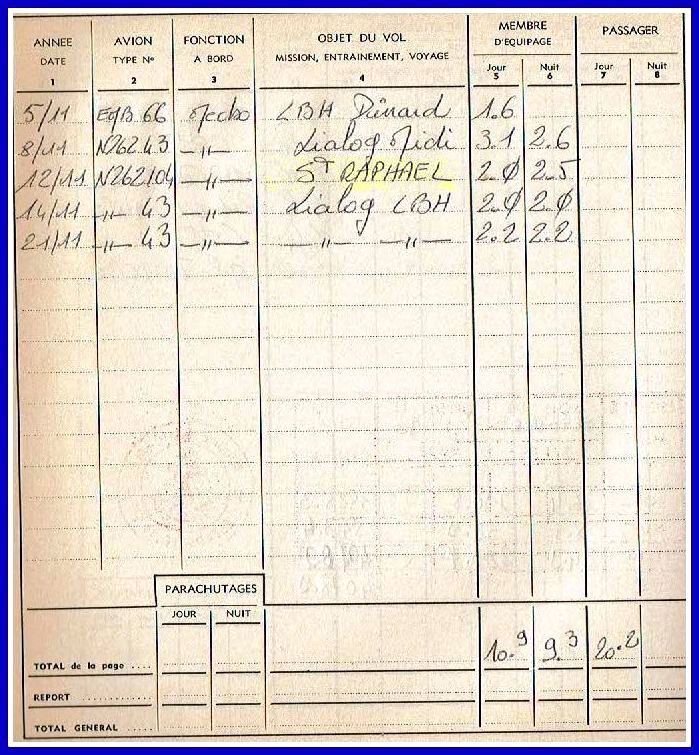 ANNEE AVION FONCTION OBJET DU VOL MEMBRE PASSAGER
DATE TYPE Nº A BORD MISSION, ENTRAINEMENT, VOYAGE D'EQUIPAGE
Jour Nuit Jour Nuit
1 2 3 4 5 6 7 8
5/11 66 Mecbo LBH Dinard 1.6
8/11 N262.43 —"— Lialog Midi 3.1 2.6
12/11 N262104 —"— ST RAPHAEL 2.Ø 2.5
14/11 —"— 43 —"— Lialog LBH 2.Ø 2.Ø
21/11 —"— 43 —"— —"— —"— 2.2 2.2
PARACHUTAGES
JOUR NUIT
TOTAL de la page .... 10.9 9.3 20.2
REPORT ............
TOTAL GENERAL .....